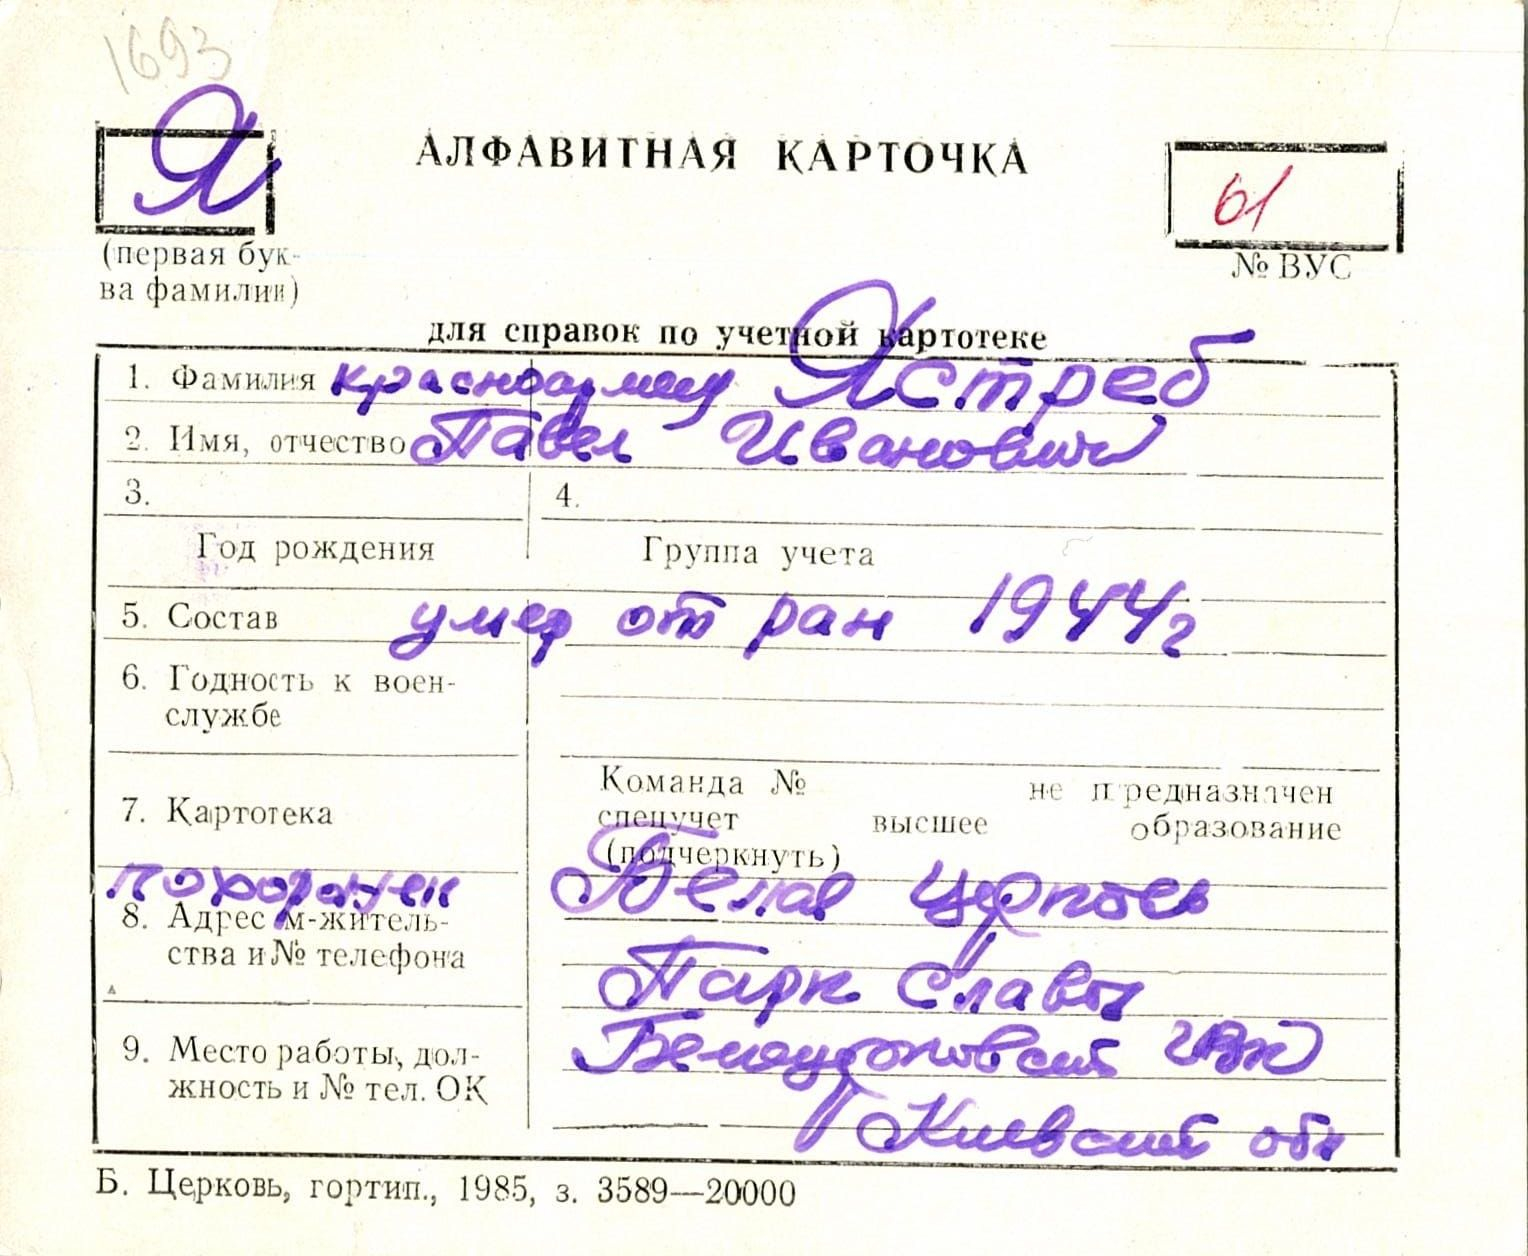 1693
Я
АЛФАВИТНАЯ КАРТОЧКА
61
(первая бук-
ва фамилии)
№ ВУС
для справок по учетной картотеке
1. Фамилия красноармеец Ястреб
2. Имя, отчество Павел Иванович
3. 4.
Год рождения Группа учета
5. Состав умер от ран 1944г
6. Годность к воен-
службе
7. Картотека
Команда № не предназначен
спецучет высшее образование
(подчеркнуть)
похоронен Белая Церковь
8. Адрес м-житель-
ства и № телефона
Парк Славы
9. Место работы, дол-
жность и № тел. ОК
Белоцерковский
Киевский обл
Б. Церковь, гортип., 1985, з. 3589—20000